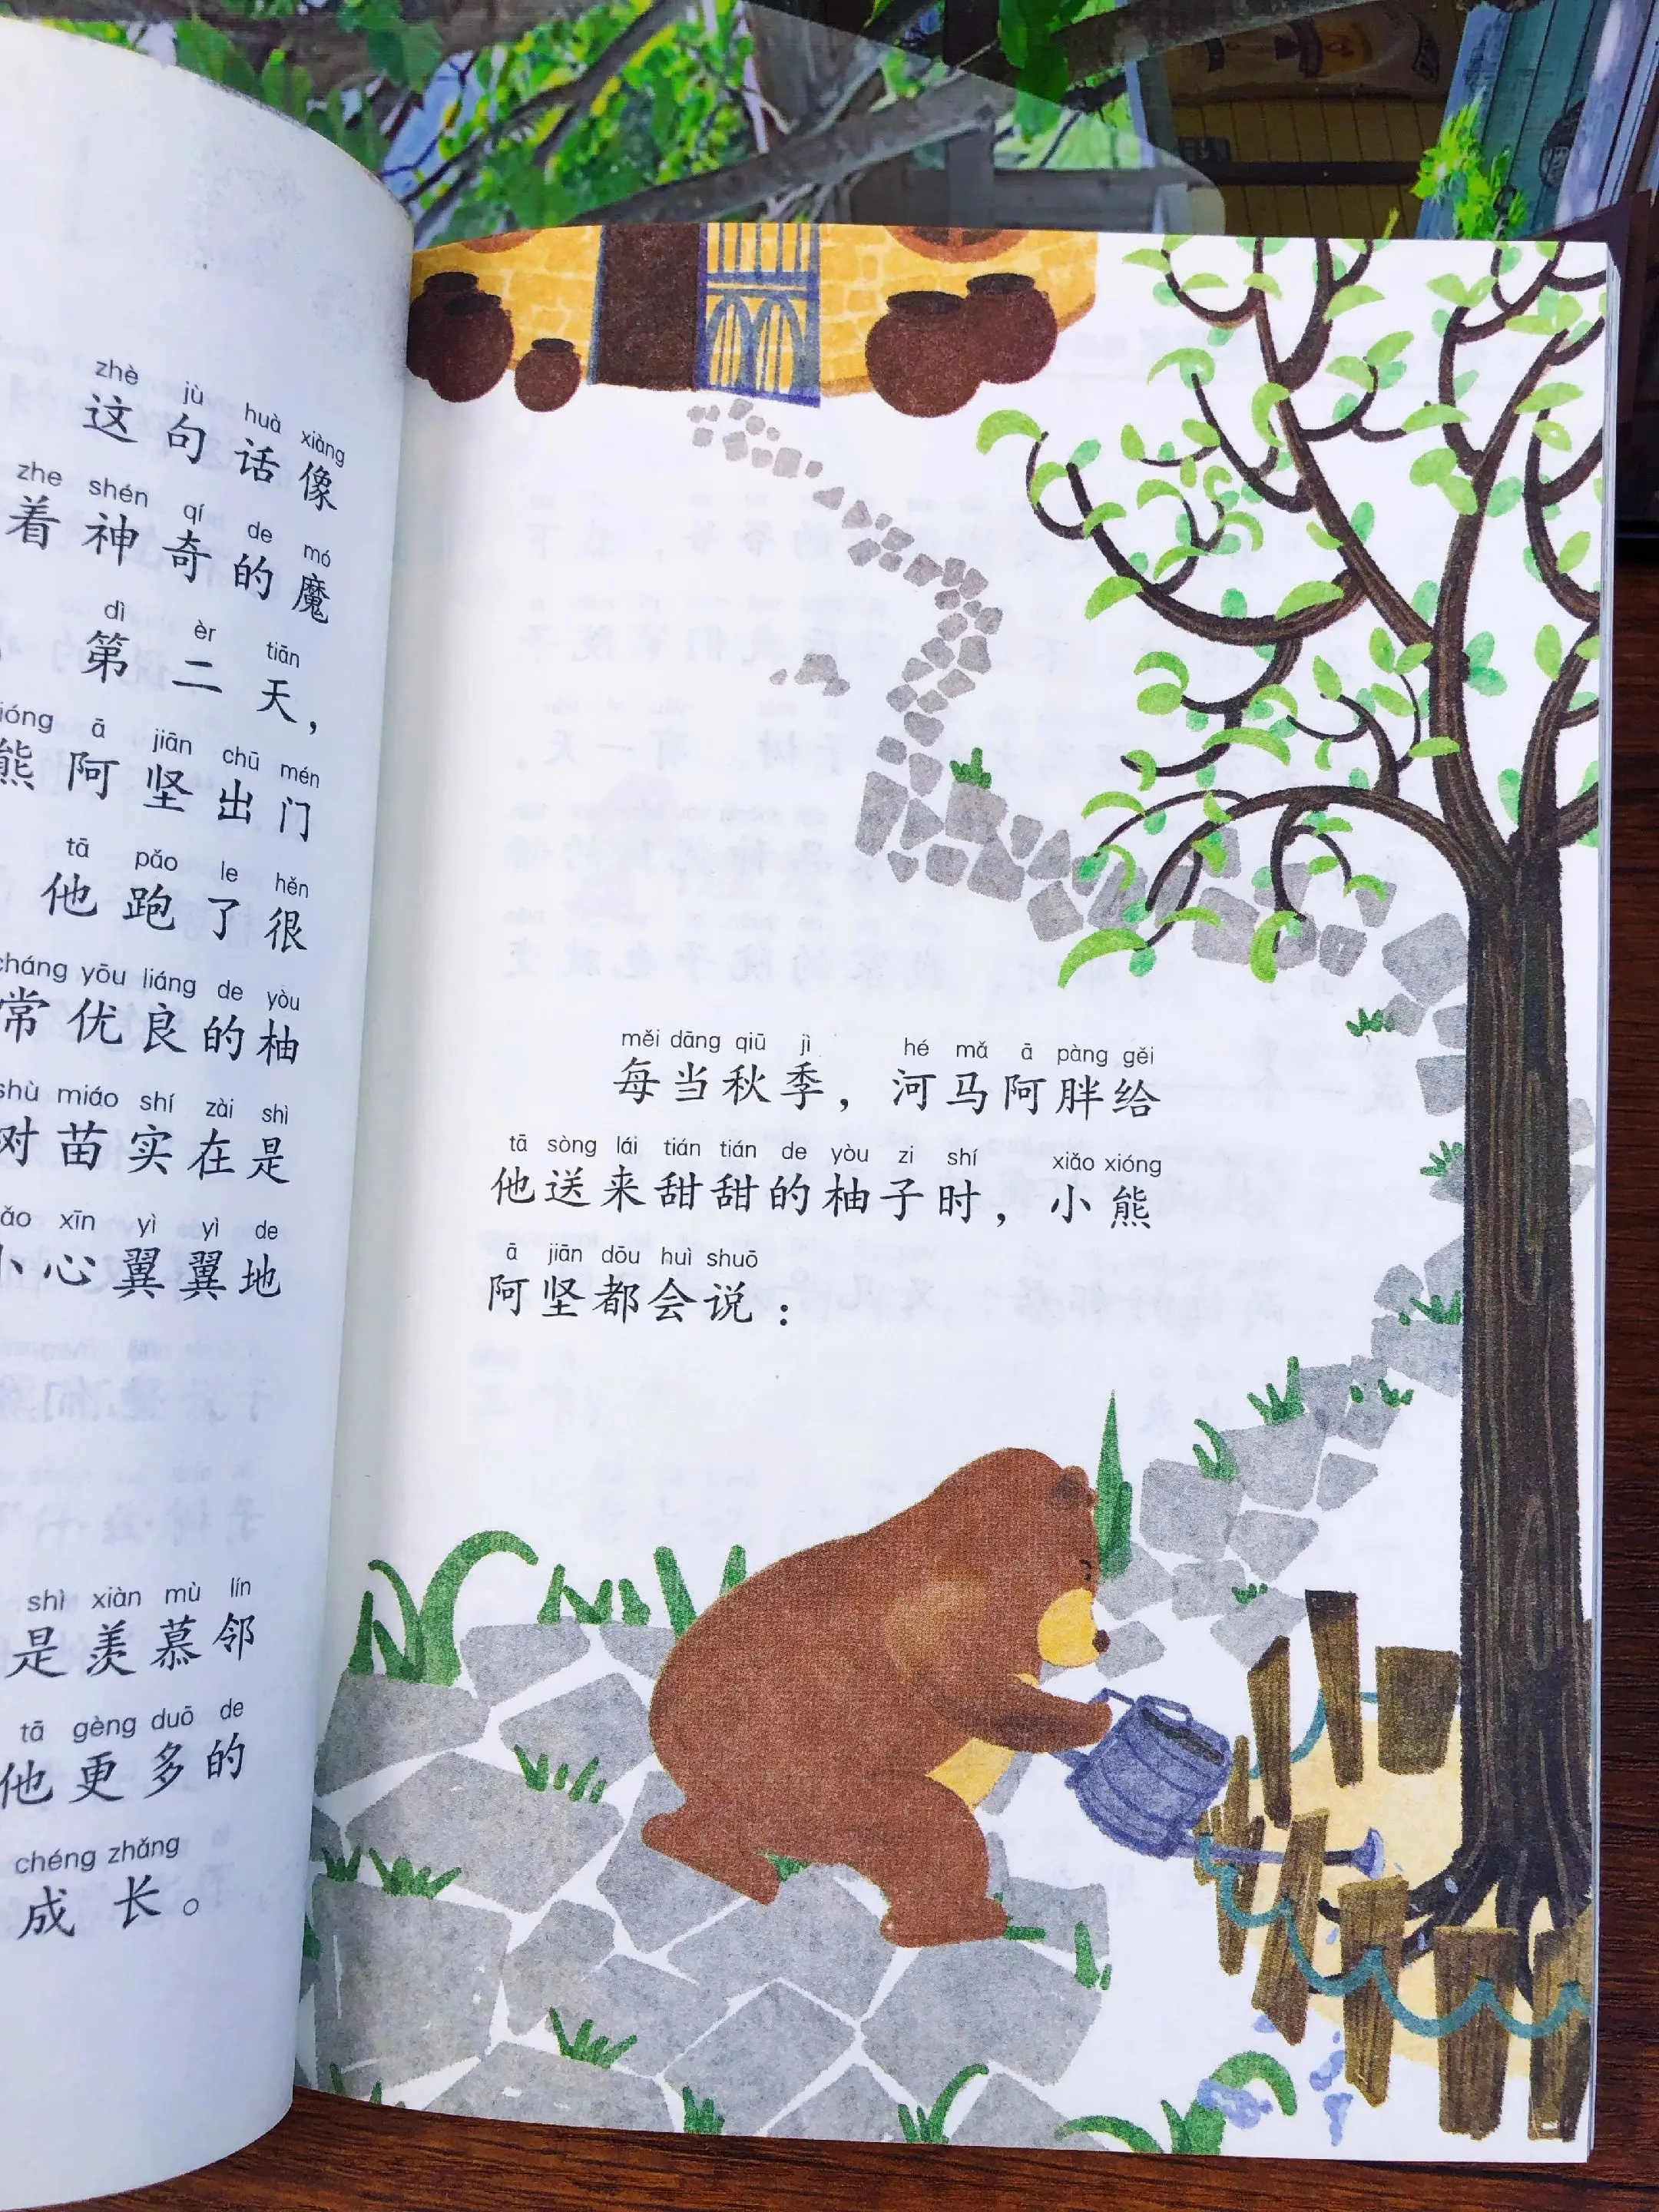 zhè jù huà xiàng
这句话像
zhe shén qí de mó
着神奇的魔
dì èr tiān
第二天，
ā jiān chū mén
熊阿坚出门
tā pǎo le hěn
他跑了很
cháng yōu liáng de yòu
常优良的柚
shù miáo shí zài shì
树苗实在是
xīn yì yì de
小心翼翼地
shì xiàn mù lín
是羡慕邻
tā gèng duō de
他更多的
chéng zhǎng
成长。
měi dāng qiū jì hé mǎ ā pàng gěi
每当秋季，河马阿胖给
tā sòng lái tián tián de yòu zi shí xiǎo xióng
他送来甜甜的柚子时，小熊
ā jiān dōu huì shuō
阿坚都会说：